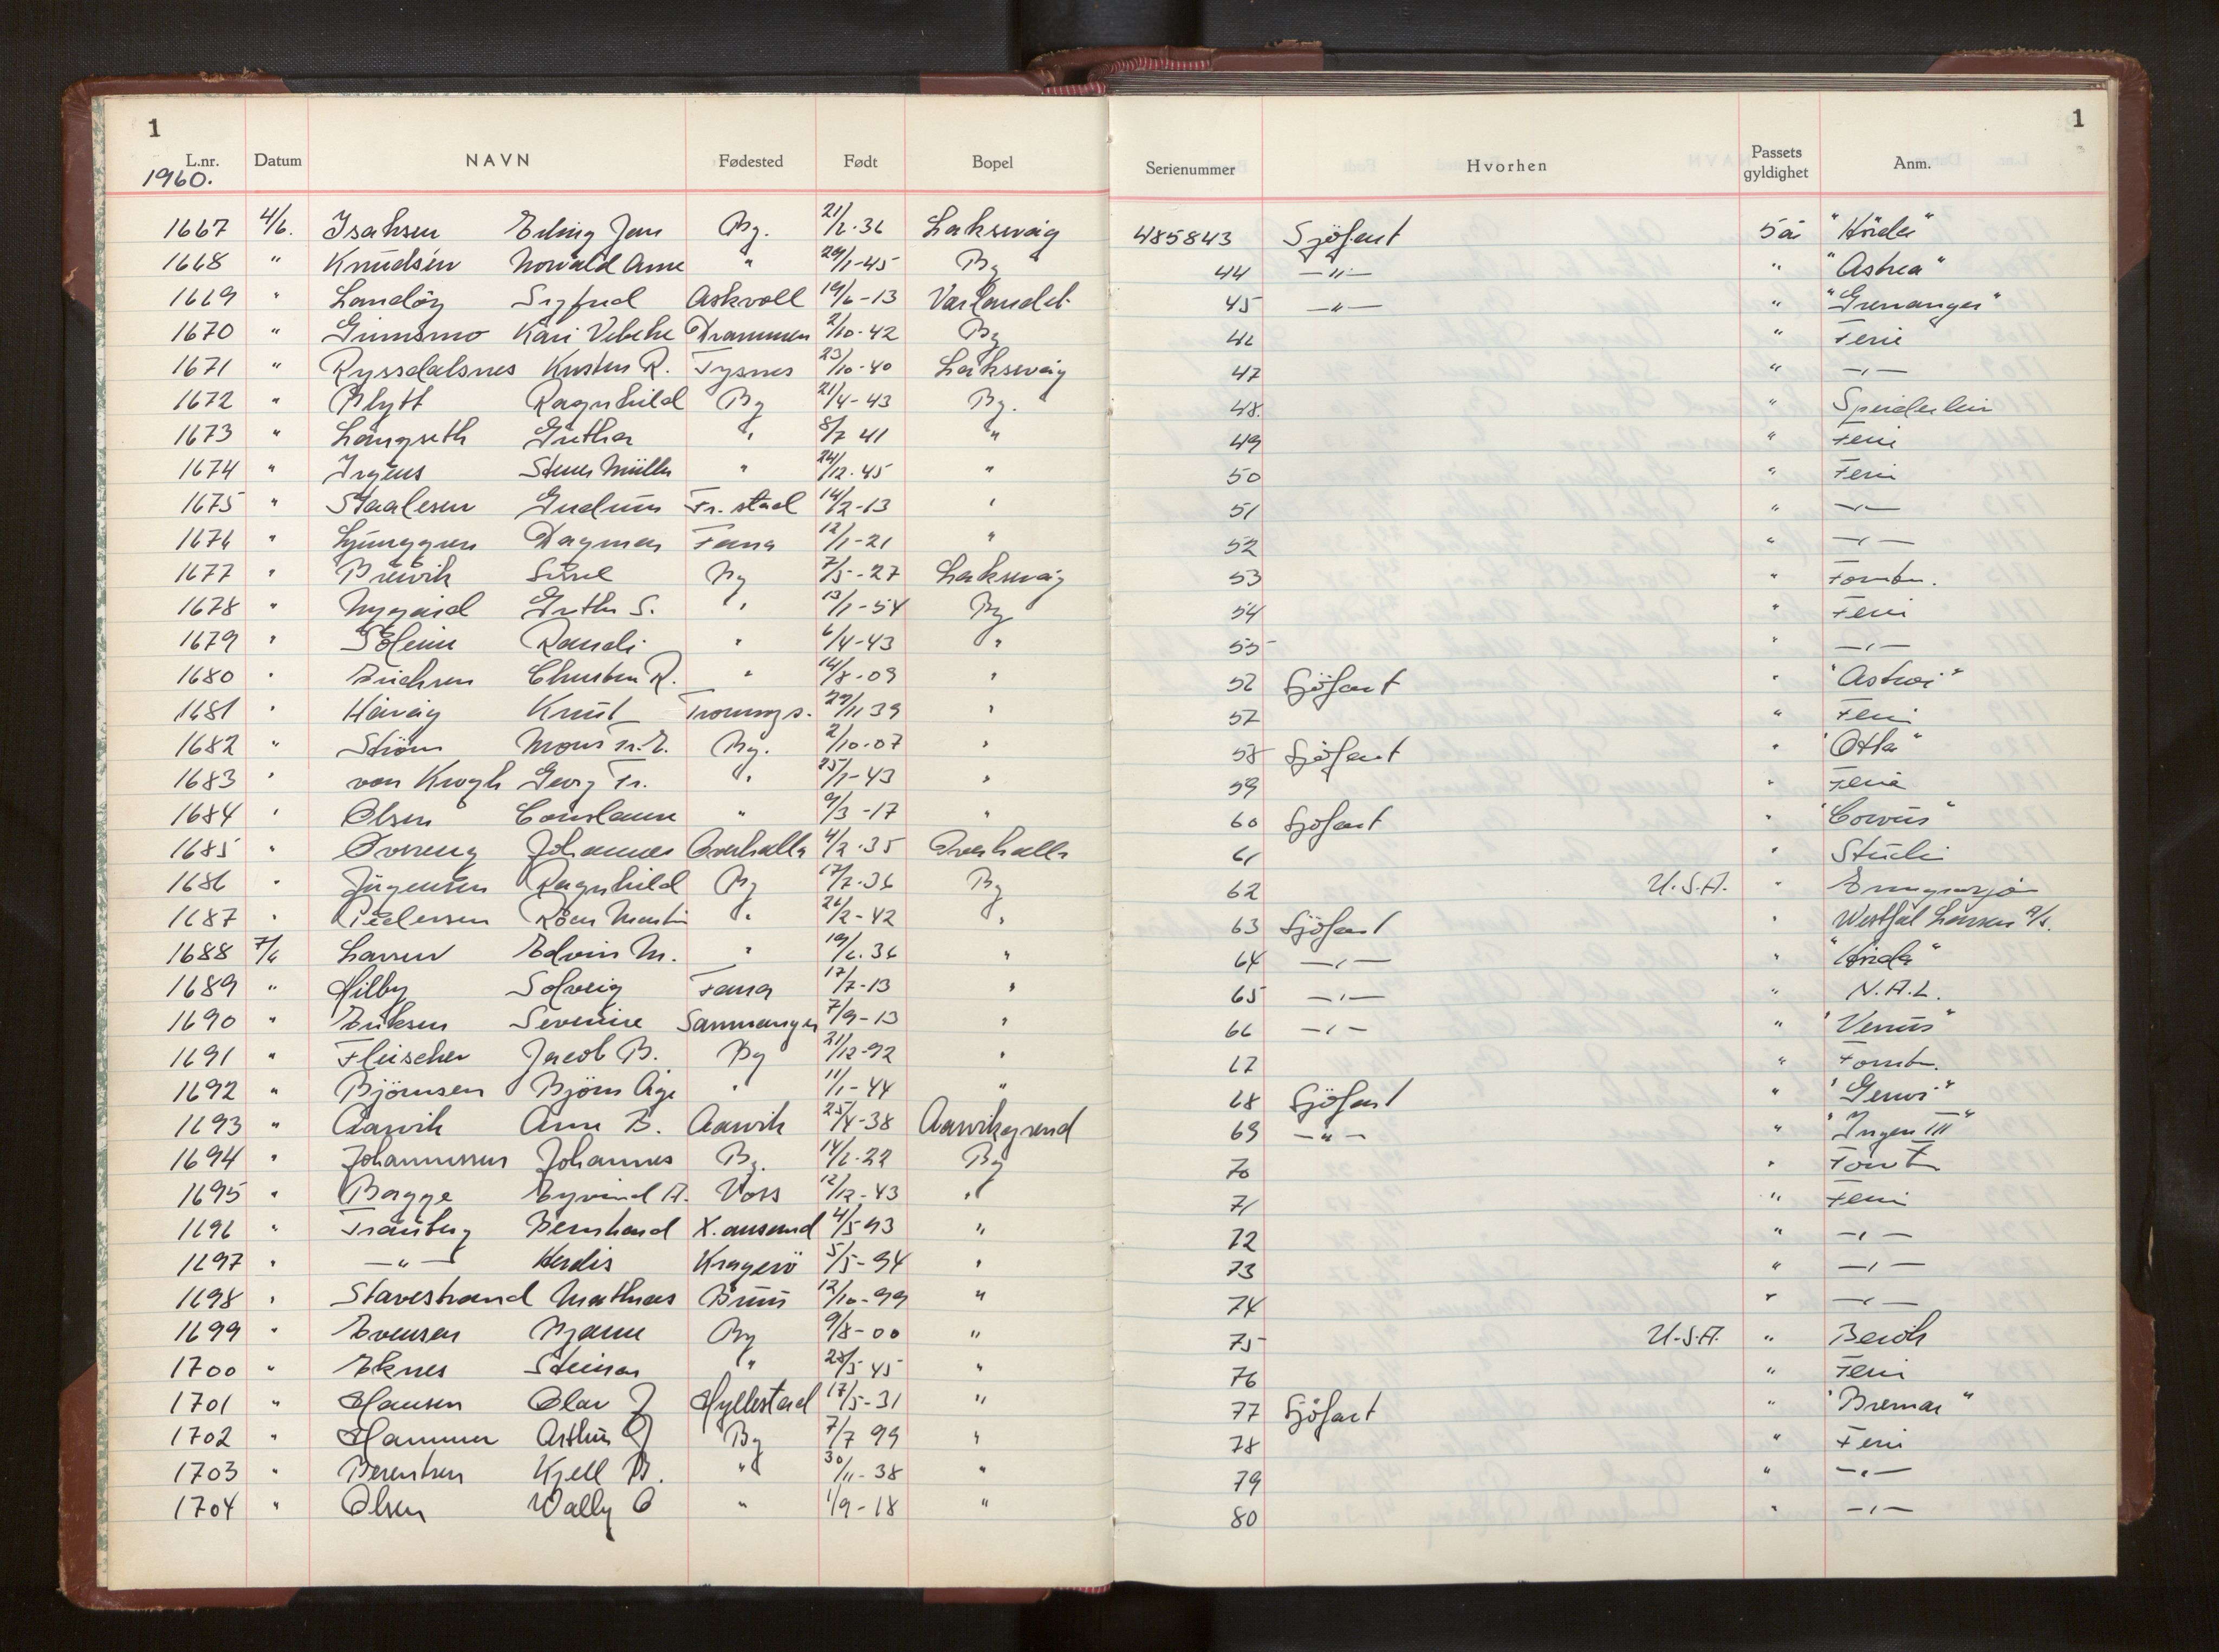 1 1
L.nr. Datum NAVN Fødested Født Bopel Serienummer Hvorhen Passets gyldighet Anm.
1960.
1667 4/6. Isaksen Erling Jan Bg. 21/2.36 Laksevåg 485843 Sjöfart 5 år "Hörda"
1668 " Knudsen Norvald Arne " 29/1-45 Bg 44 —"— " "Astrea"
1669 " Landöy Sigfred Askvoll 19/6-13 45 —"— " "Grenanger"
1670 " Gimsmo Kari Vibeke Drammen 2/10-42 Bg 46 " Ferie
1671 " Ryssdalsnes Kirsten R. Tysnes 23/10-40 Laksevåg 47 " —"—
1672 " Blytt Ragnhild Bg 21/4-43 Bg. 48 " Speiderleir
1673 " Langseth Grethe " 8/7 41 " 49 " Ferie
1674 " Irgens Müller " 24/12.45 " 50 " Ferie
1675 " Staalesen Gudrun Fr.stad 14/2-13 " 51 " —"—
1676 " Ljunggren Dagmar Fana 12/1-21 " 52 " —"—
1677 " Breivik Sissel Bg 7/5-27 Laksevåg 53 "
1678 " Nygård Grethe S. " 13/1-54 Bg 54 " Ferie
1679 " Solheim Randi " 6/4-43 " 55 " —"—
1680 " Erichsen R. " 14/8-09 " 56 Sjöfart "
1681 " Håvåg Knut 29/11 39 " 57 " Ferie
1682 " Ström Mons Bg. 2/10-07 " 58 Sjöfart " "Otta"
1683 " von Krogh Georg Fr. " 25/1-43 " 59 " Ferie
1684 " Olsen Constanse " 9/3-17 " 60 Sjöfart " "Corvus"
1685 " Övereng Johannes Overhalla 4/2.35 Overhalla 61 " Studie
1686 " Jörgensen Ragnhild Bg 17/7.36 Bg 62 U.S.A. "
1687 " Pedersen Martin " 26/2-42 " 63 Sjöfart " Westfal Larsen A/S.
1688 7/6 Larsen Edvin M. " 19/6.36 " 64 —"— "
1689 " Hilby Solveig Fana 17/7-13 " 65 —"— " N.A.L.
1690 " Eriksen Severine Samnanger 7/9-13 " 66 —"— " "Venus"
1691 " Fleischer Jacob B. Bg 21/12-92 " 67 "
1692 " Björnsen Björn Åge " 11/1-44 " 68 Sjöfart "
1693 " Aarvik Arne B. Aarvik 25/4-38 Aarvikgrend 69 —"— " "Inger III"
1694 " Johannessen Johannes Bg. 14/6.22 Bg 70 "
1695 " Bagge Eyvind A. Voss 12/12-43 " 71 " Ferie
1696 " Trauberg Bernhard X.ansund 4/5 93 " 72 " —"—
1697 " —"— Herdis Kragerö 5/5-94 " 73 " —"—
1698 " Stavestrand Mathias Bruu 12/10-99 " 74 " —"—
1699 " Evensen Bjarne Bg 9/8-00 " 75 U.S.A. " Besök
1700 " Eknes Steinar " 28/5 45 " 76 " Ferie
1701 " Hansen Olav J Hyllestad 17/5-31 " 77 Sjöfart " "Bremar"
1702 " Hammer Arthur J Bg 7/7 99 " 78 " Ferie
1703 " Berentsen Kjell B. " 30/11-38 " 79 " —"—
1704 " Olsen Wally O " 1/9-18 " 80 " —"—